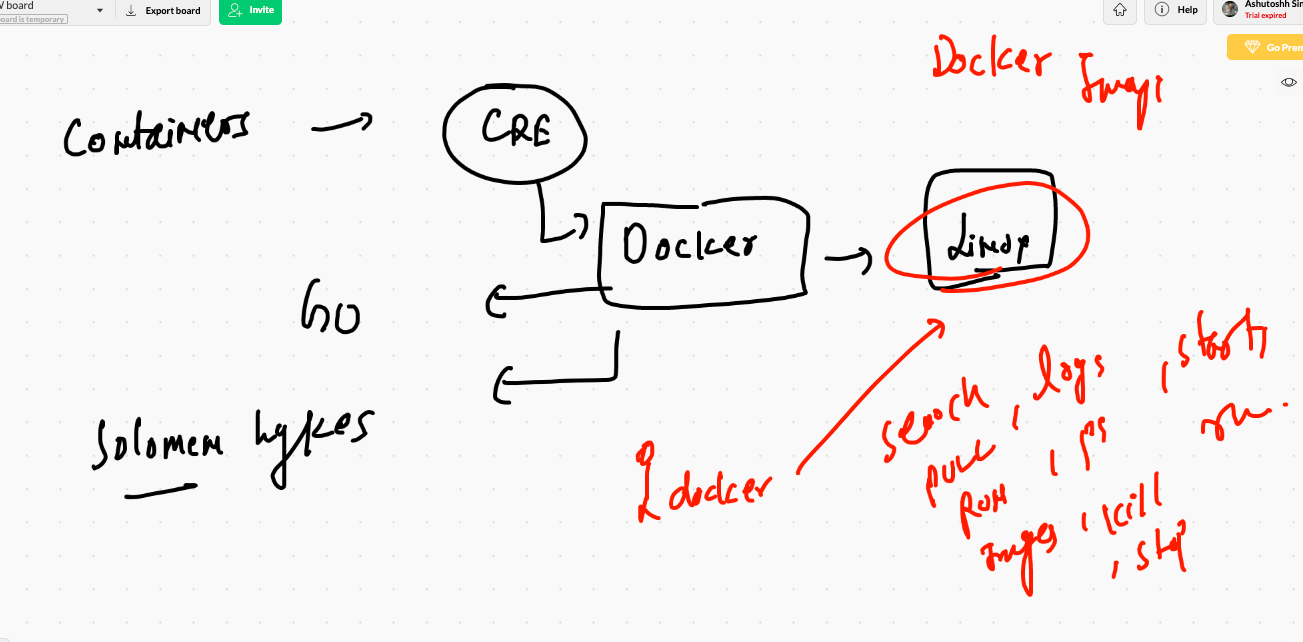 V board
board is temporary
Export board
Invite
Help
Ashutoshh Sin
Trial expired
Go Prem
Docker
Containers
CRE
Docker
Linux
Go
Solomen hykes
docker
search , logs , start
pull , ps
run
images , kill
, stop